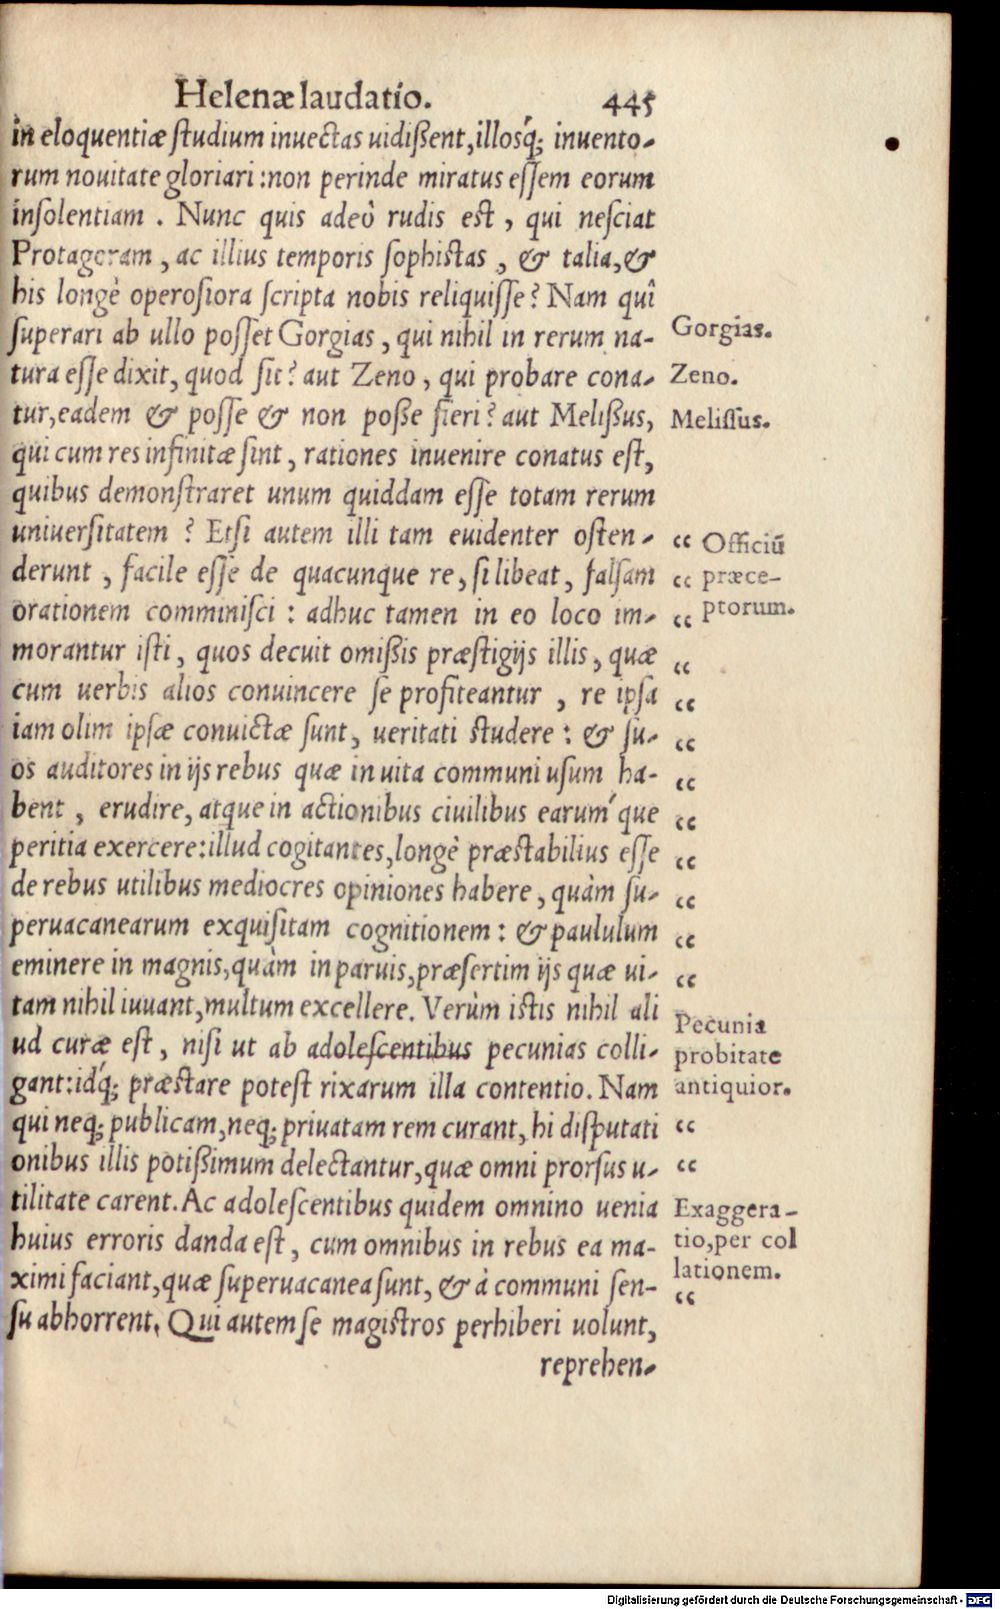 Helenæ laudatio. 445
in eloquentiæ ſtudium inuectas uidißent, illosq́; inuento-
rum nouitate gloriari: non perinde miratus eſſem eorum
inſolentiam. Nunc quis adeò rudis eſt, qui neſciat
Protagoram, ac illius temporis ſophiſtas, & talia, &
his longè operoſiora ſcripta nobis reliquiſſe? Nam quî
ſuperari ab ullo poſſet Gorgias, qui nihil in rerum na-
Gorgias.
tura eſſe dixit, quod ſit? aut Zeno, qui probare cona-
Zeno.
tur, eadem & poſſe & non poße fieri? aut Melißus,
Meliſſus.
qui cum res infinitæ ſint, rationes inuenire conatus eſt,
quibus demonſtraret unum quiddam eſſe totam rerum
uniuerſitatem? Etſi autem illi tam euidenter oſten-
“ Officiū
derunt, facile eſſe de quacunque re, ſi libeat, falſam
“ præce-
orationem comminiſci: adhuc tamen in eo loco im-
“ ptorum.
morantur iſti, quos decuit omißis præſtigijs illis, quæ
“
cum uerbis alios conuincere ſe profiteantur, re ipſa
“
iam olim ipſæ conuictæ ſunt, ueritati ſtudere: & ſu-
“
os auditores in ijs rebus quæ in uita communi uſum ha-
“
bent, erudire, atque in actionibus ciuilibus earuḿque
“
peritia exercere: illud cogitantes, longè præſtabilius eſſe
“
de rebus utilibus mediocres opiniones habere, quàm ſu-
“
peruacanearum exquiſitam cognitionem: & paululum
“
eminere in magnis, quàm in paruis, præſertim ijs quæ ui-
“
tam nihil iuuant, multum excellere. Verùm iſtis nihil ali
Pecunia
ud curæ eſt, niſi ut ab adoleſcentibus pecunias colli-
probitate
gant: idq́; præſtare poteſt rixarum illa contentio. Nam
antiquior.
qui neq; publicam, neq; priuatam rem curant, hi diſputati
“
onibus illis potißimum delectantur, quæ omni prorſus u-
“
tilitate carent. Ac adoleſcentibus quidem omnino uenia
Exaggera-
huius erroris danda eſt, cum omnibus in rebus ea ma-
tio, per col
ximi faciant, quæ ſuperuacanea ſunt, & à communi ſen-
lationem.
“
ſu abhorrent. Qui autem ſe magiſtros perhiberi uolunt,
reprehen-
Digitalisierung gefördert durch die Deutsche Forschungsgemeinschaft - DFG